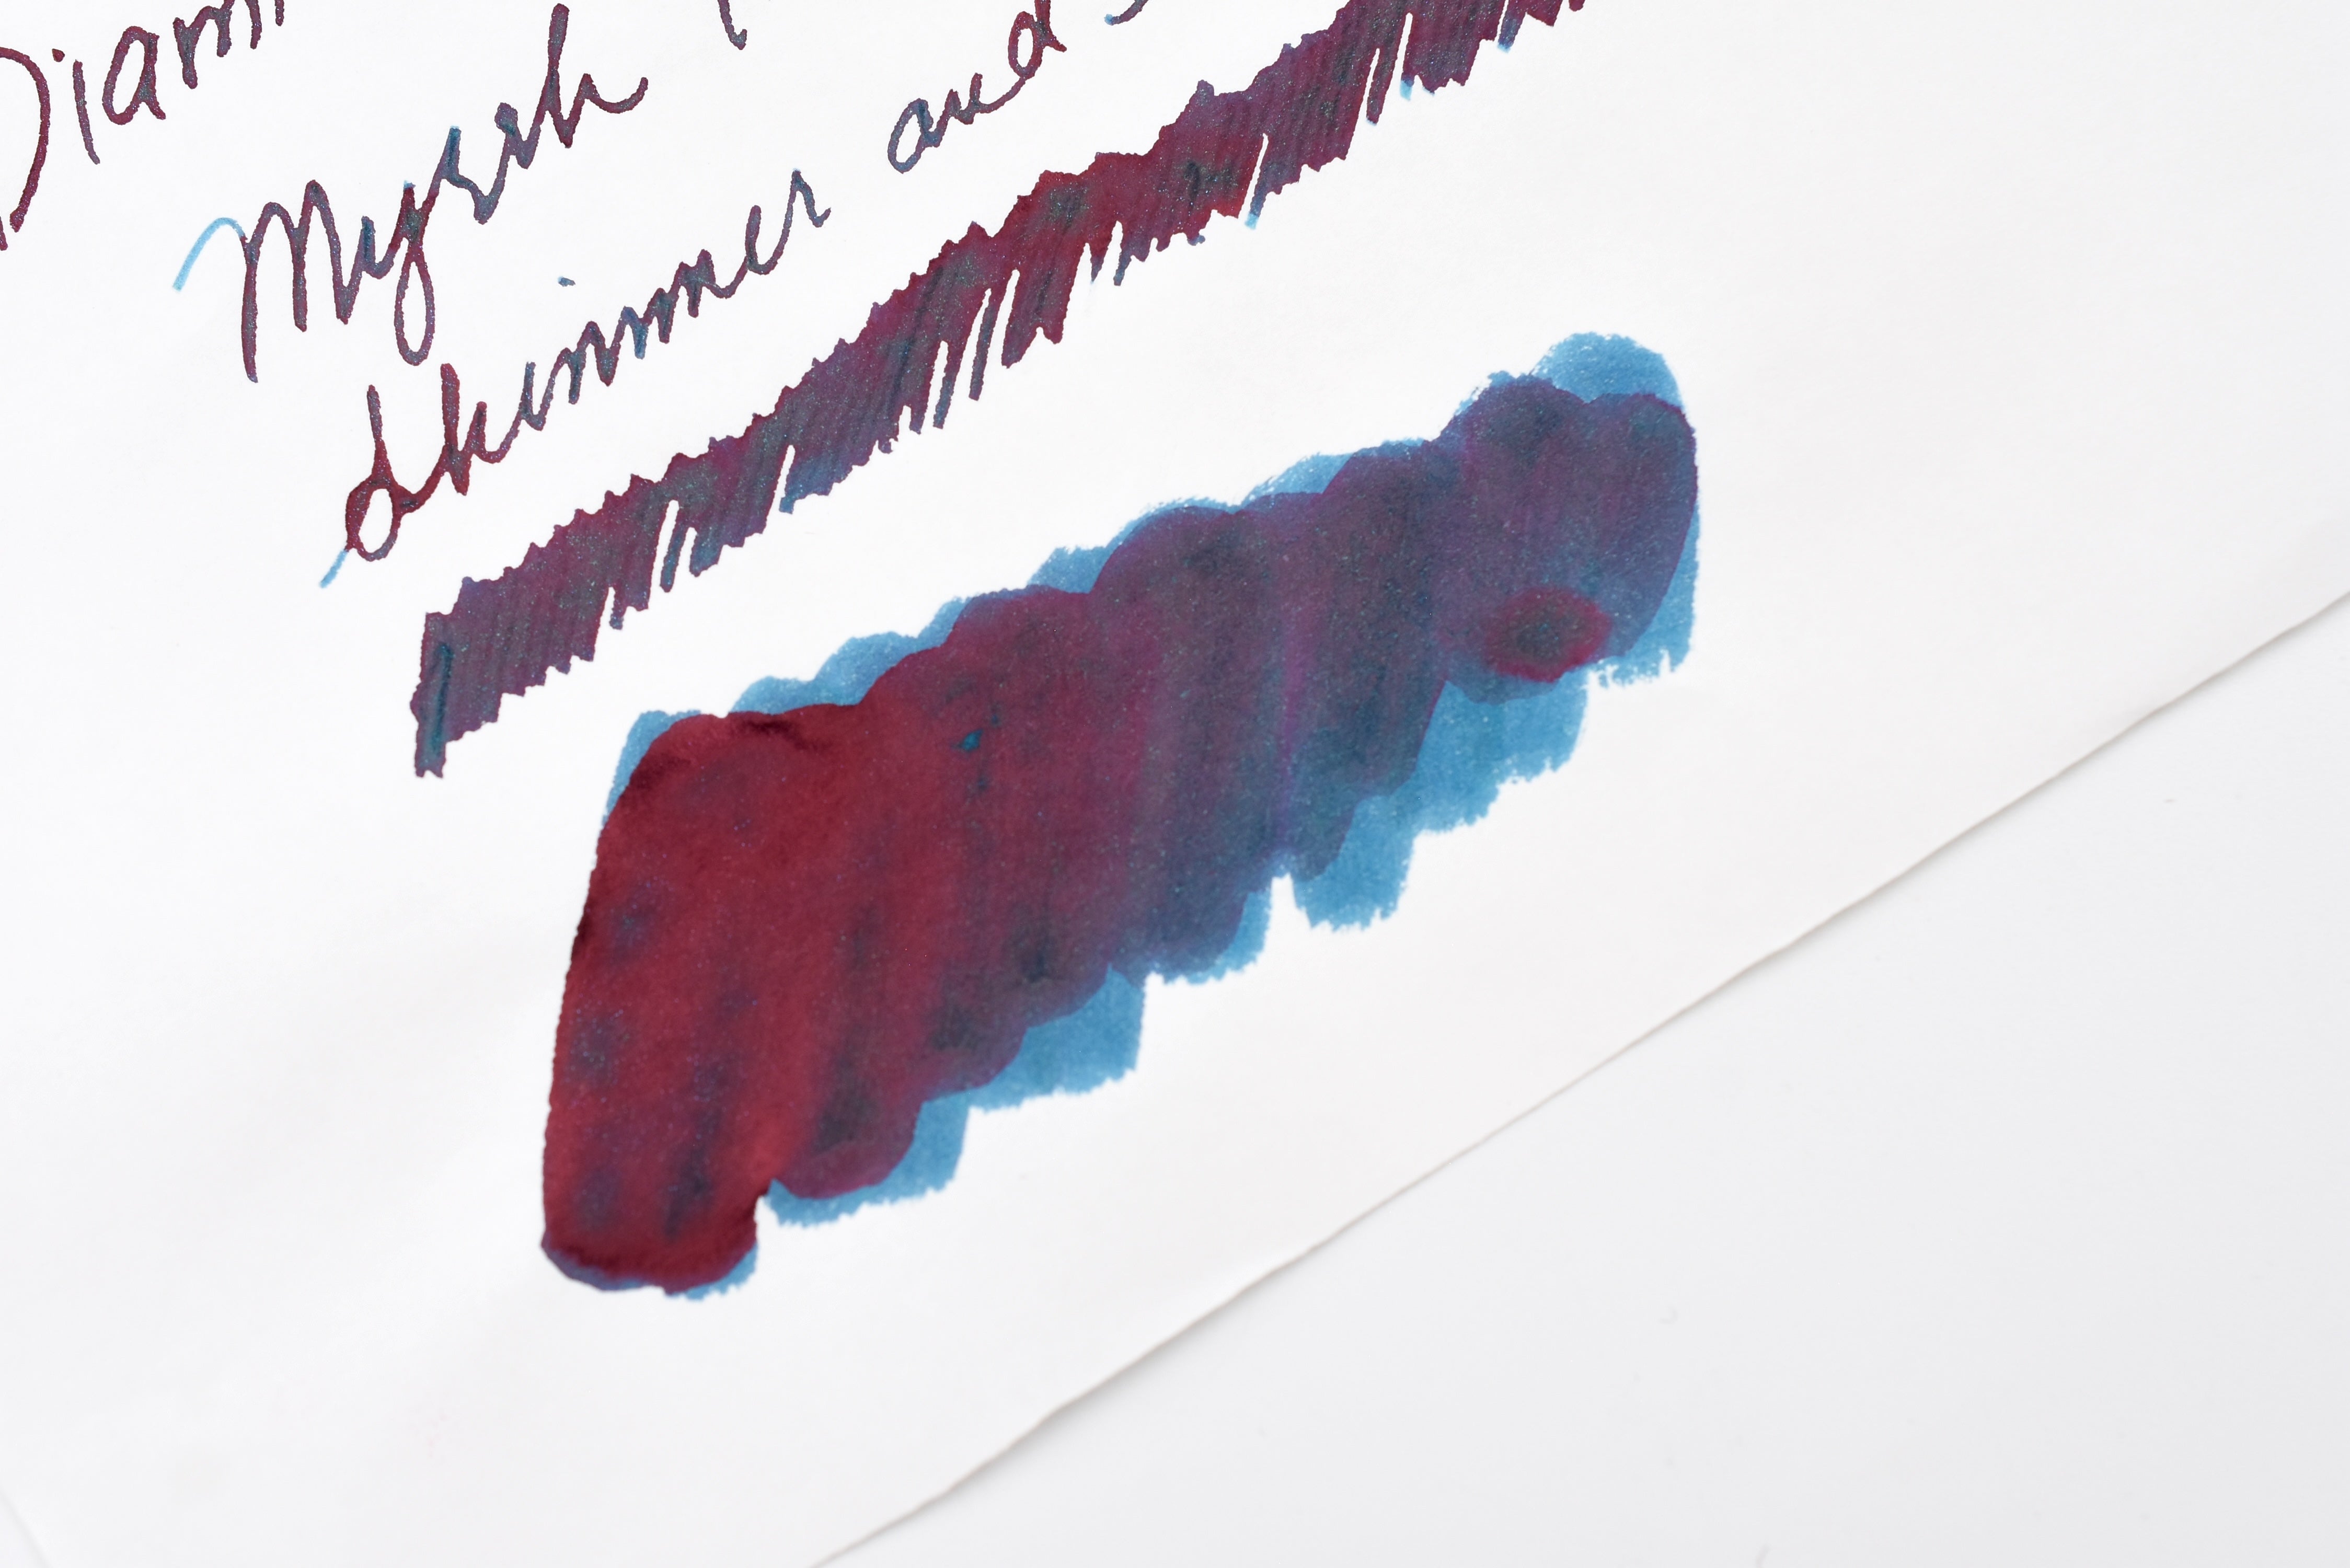 Diam
Myrrh
shimmer and